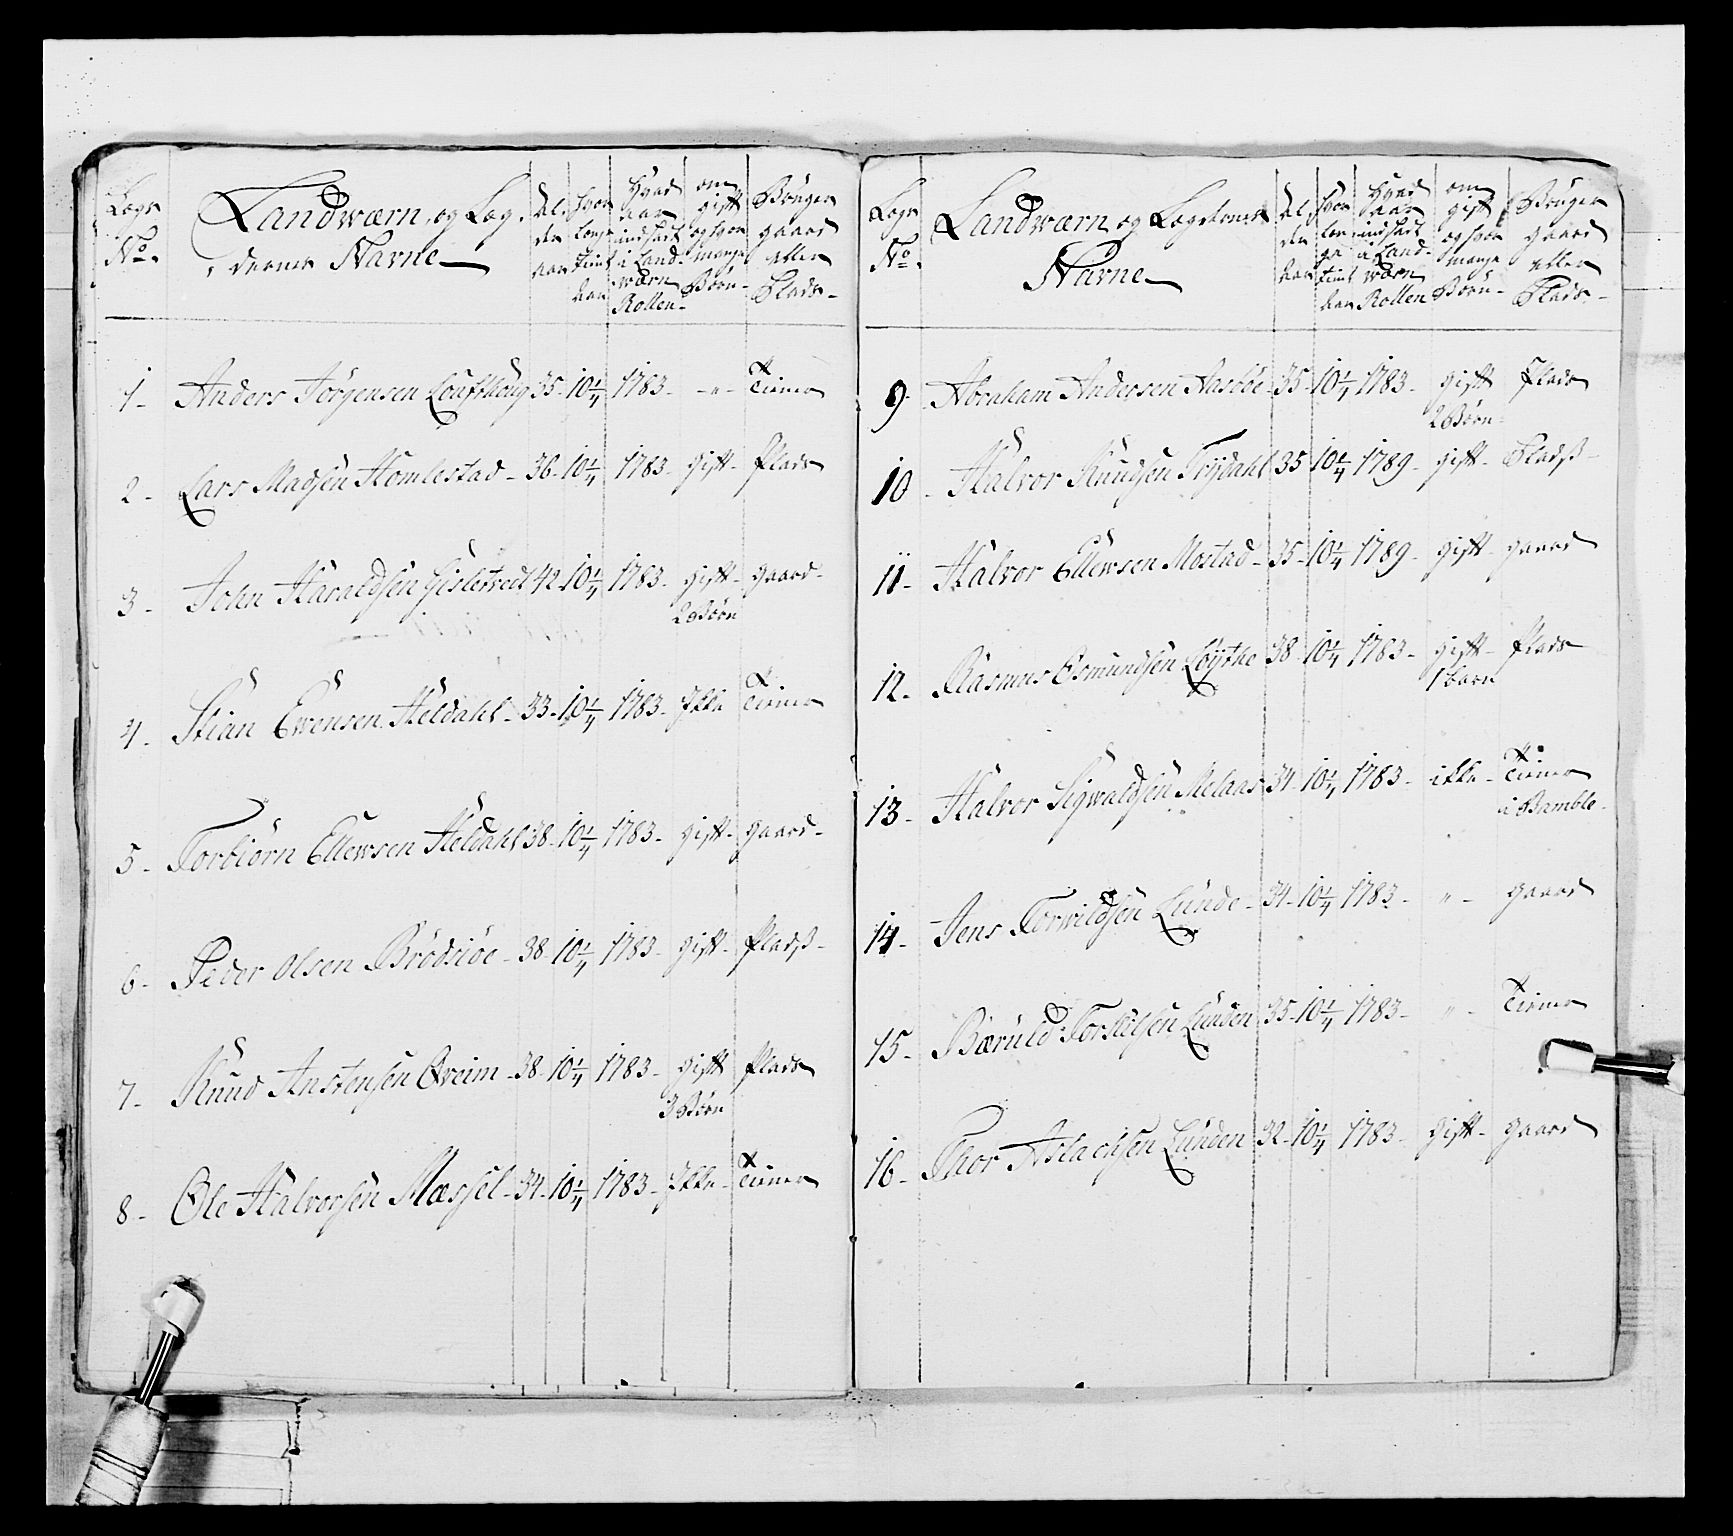 Logs No. Landwærn og Log- dernes Navne Al- der aar hvor længe tient aar Hvad aar indsadt i Land- wærn Rollen om gift og hvor mange Børn Bruger gaard eller Plads
1 - Anders Jörgensen Loufthoug 35 - 10 1/4 1783 - - " - Tiener
2 - Lars Madsen Homlestad - 36 - 10 1/4 1783 - gift - Plads
3 - John Haraldsen Gisletvedt 42 - 10 1/4 1783 - gift - gaard -
2 Børn
4 - Stian Ewensen Heldahl - 33 - 10 1/4 1783 - Ikke Tiener
5 - Torbiörn Ellewsen Heldahl 38 - 10 1/4 1783 - gift - gaard -
6 - Peder Olsen Brödsiöe - 38 - 10 1/4 1783 - gift - Pladß -
7 - Knud Anstensen Qveim - 38 - 10 1/4 1783 - gift Plads
3 Børn
8 - Ole Halvorsen Mæssel - 34 - 10 1/4 1783 - Ikke - Tiener
Logs No. Landwærn og Logdernes Navne Al der aar hvor længe tient aar Hvad aar indsadt i Land- wærn Rollen om gift og hvor mange Børn - Bruger gaard eller Plads -
9 - Abraham Andersen Aasböe 35 - 10 1/4 1783 - gift Plads
2 Børn -
10 - Halvor Knudsen Trydahl 35 10 1/4 1789 - gift - Pladß -
11 - Halvor Ellewsen Mostad - 35 - 10 1/4 1789 - gift - gaard
12 - Rasmus Osmundsen Löythe 38 - 10 1/4 1783 - gift - Plads
1 barn
13 - Halvor Sigwaldsen Melaas 34 - 10 1/4 1783 - ikke - Tiener
i Bamble -
14 - Jens Torwildsen Lunde - 34 - 10 1/4 1783 - " - gaard
15 - Bæruld Torkilsen Lunden 35 - 10 1/4 1783 - " - Tiener
16 - Thor Aslachsen Lunden 32 - 10 1/4 1783 - gift - gaard